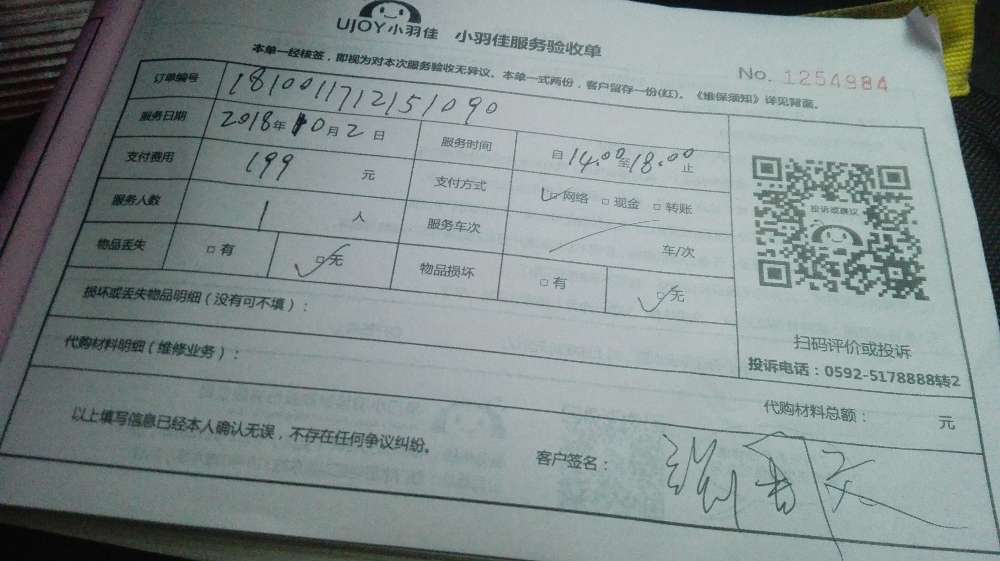 UJOY小羽佳 小羽佳服务验收单
No. 1254984
本单一经核签，即视为对本次服务验收无异议。本单一式两份，客户留存一份(红)。《维保须知》详见背面。
订单编号 181001171215109０
服务日期 2018年10月2日 服务时间 自14.00至18.00止
支付费用 199 元 支付方式 □网络 □现金 □转账
服务人数 1 人 服务车次 车/次
物品丢失 □有 □无 物品损坏 □有 □无
投诉或建议
损坏或丢失物品明细（没有可不填）：
扫码评价或投诉
投诉电话：0592-5178888转2
代购材料明细（维修业务）：
代购材料总额： 元
以上填写信息已经本人确认无误，不存在任何争议纠纷。
客户签名：